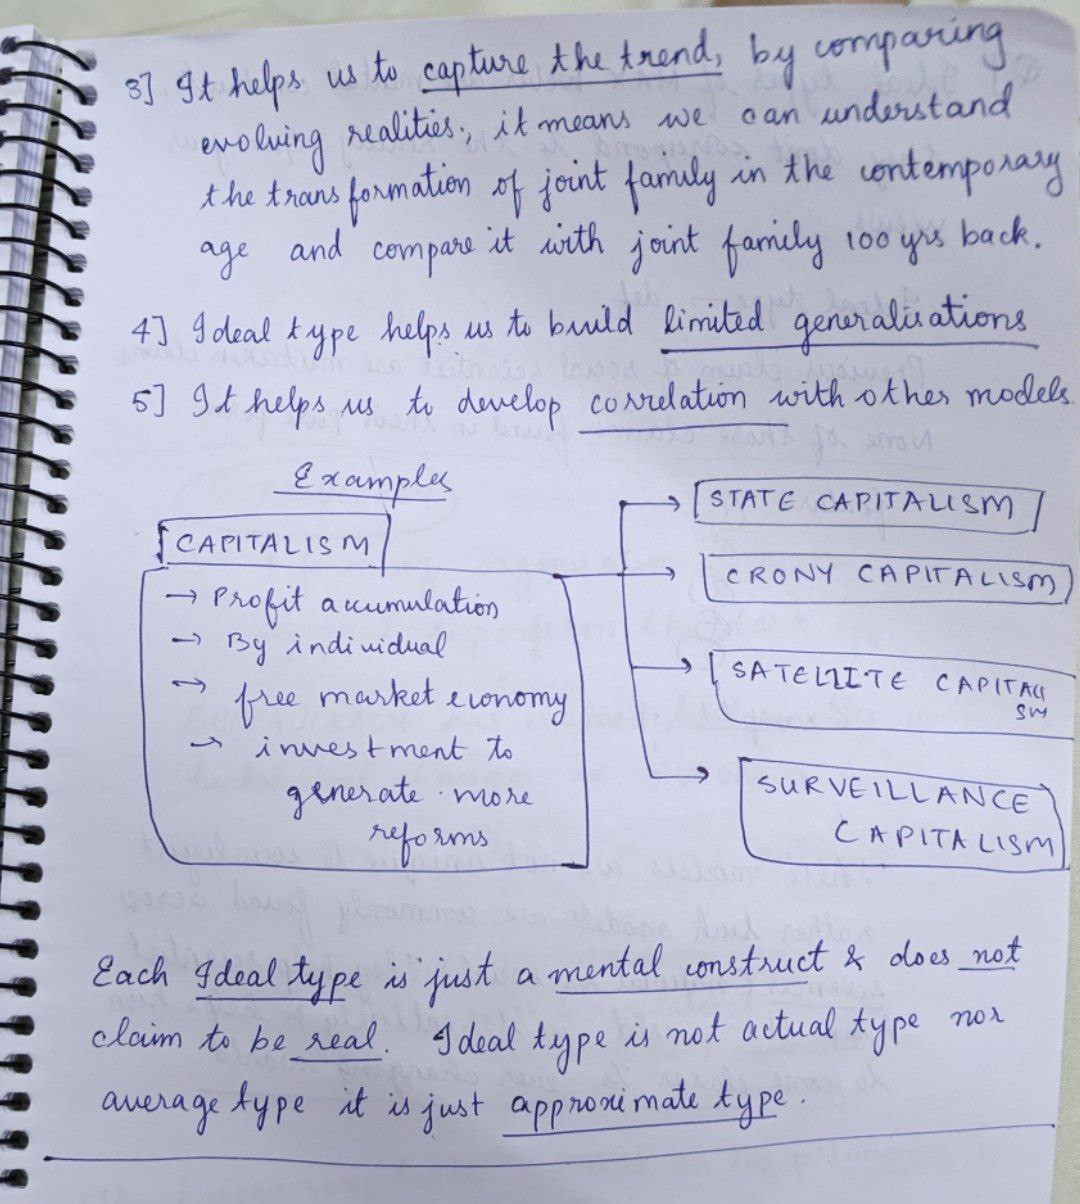 3] It helps us to capture the trend, by comparing
evolving realities, it means we can understand
the transformation of joint family in the contemporary
age and compare it with joint family 100 yrs back.
4] Ideal type helps us to build limited generalisations
5] It helps us to develop correlation with other models.
Examples
CAPITALISM
→ Profit accumulation
→ By individual
→ free market economy
→ investment to
generate more
reforms
STATE CAPITALISM
CRONY CAPITALISM
SATELLITE CAPITALI
SM
SURVEILLANCE
CAPITALISM
Each Ideal type is just a mental construct & does not
claim to be real. Ideal type is not actual type nor
average type it is just approximate type.